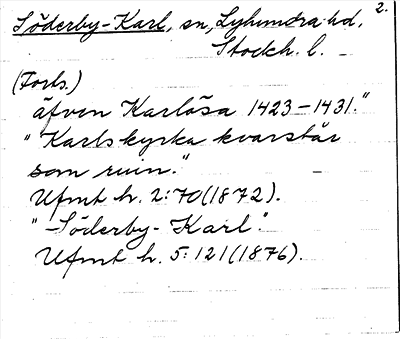 2.
Söderby-Karl, sn, Lyhundra hd,
Stockh. l.
(Forts.)
äfven Karlösa 1423-1431."
"Karls kyrka kvarstår
som ruin."
Ufmt h. 2:70 (1872).
"-Söderby-Karl".
Ufmt h. 5:121 (1876).